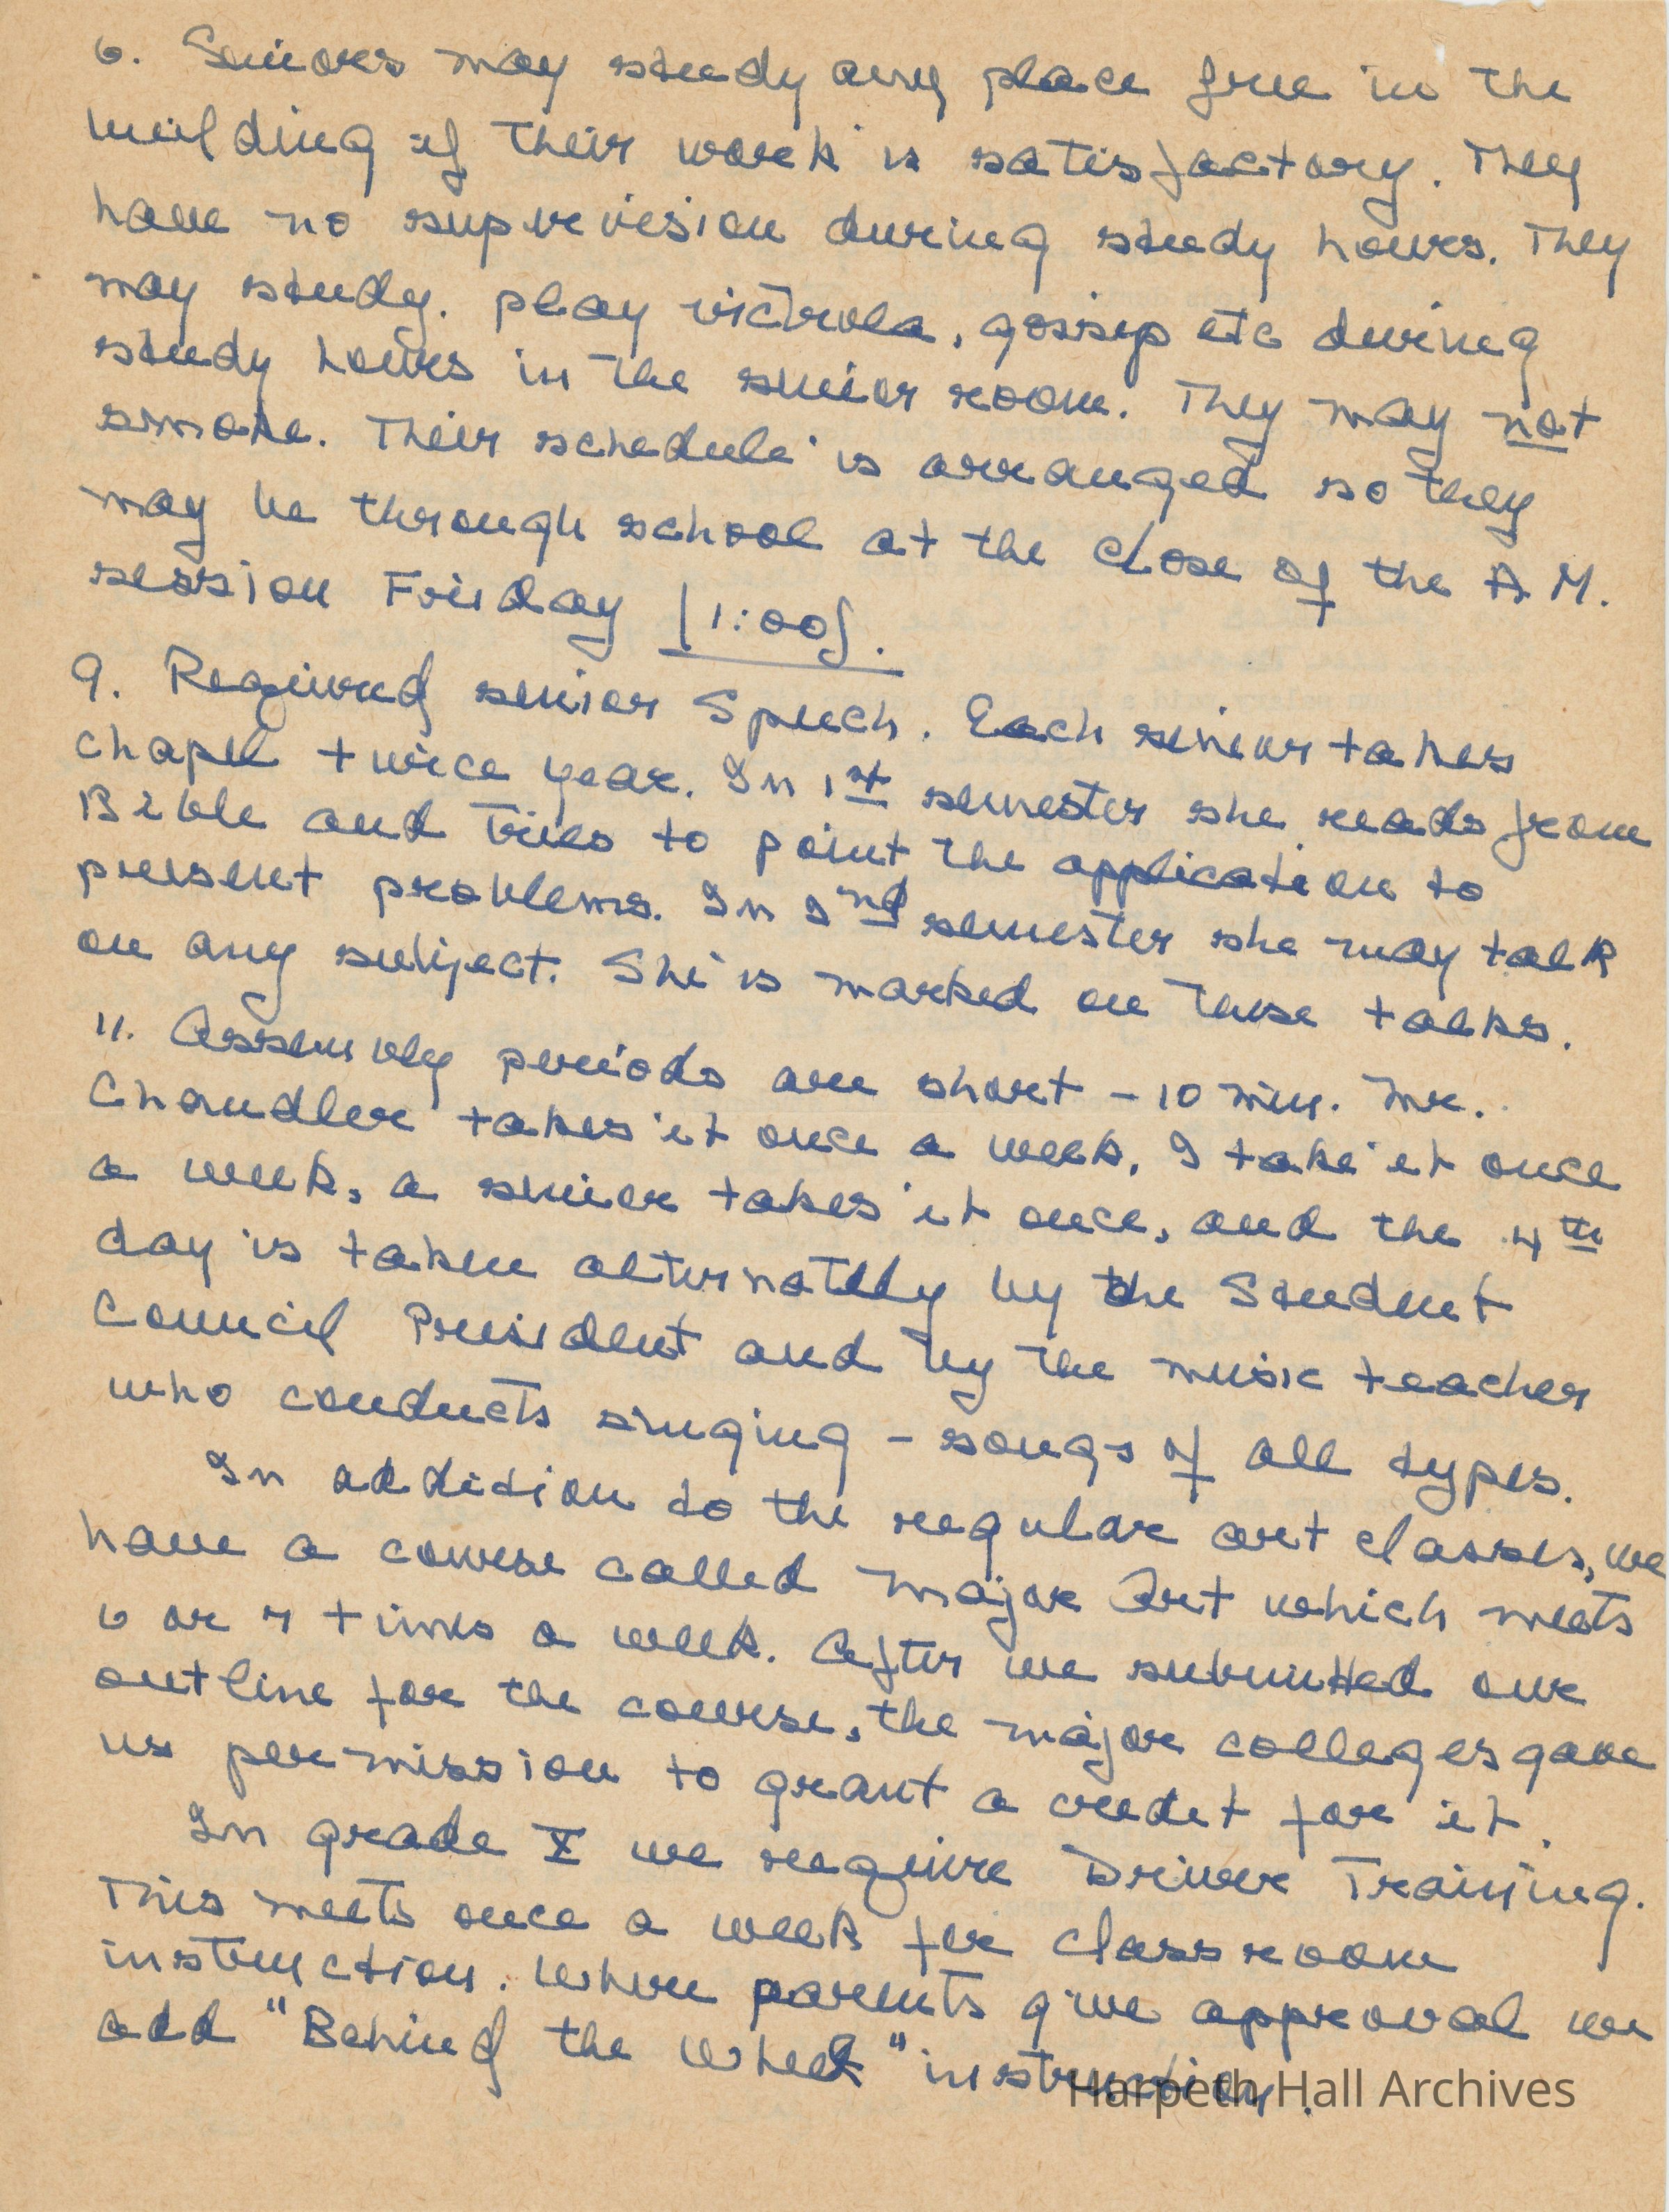 6. Seniors may study any place free in the
building if their work is satisfactory. They
have no supervision during study hours. They
may study, play victrola, gossip etc during
study hours in the senior room. They may not
smoke. Their schedule is arranged so they
may be through school at the close of the A.M.
session Friday (1:00).
9. Required senior Speech. Each senior takes
chapel twice year. In 1st semester she reads from
Bible and tries to point the application to
present problems. In 2nd semester she may talk
on any subject. She is marked on these talks.
11. Assembly periods are short - 10 min. Mr.
Chandler takes it once a week, I take it once
a week, a senior takes it once, and the 4th
day is taken alternately by the Student
Council President and by the music teacher
who conducts singing - songs of all types.
In addition to the regular art classes, we
have a course called Major Art which meets
6 or 7 times a week. After we submitted our
outline for the course, the major colleges gave
us permission to grant a credit for it.
In grade X we require Driver Training.
This meets once a week for classroom
instruction. Where parents give approval we
add "Behind the Wheel" instruction.
Harpeth Hall Archives